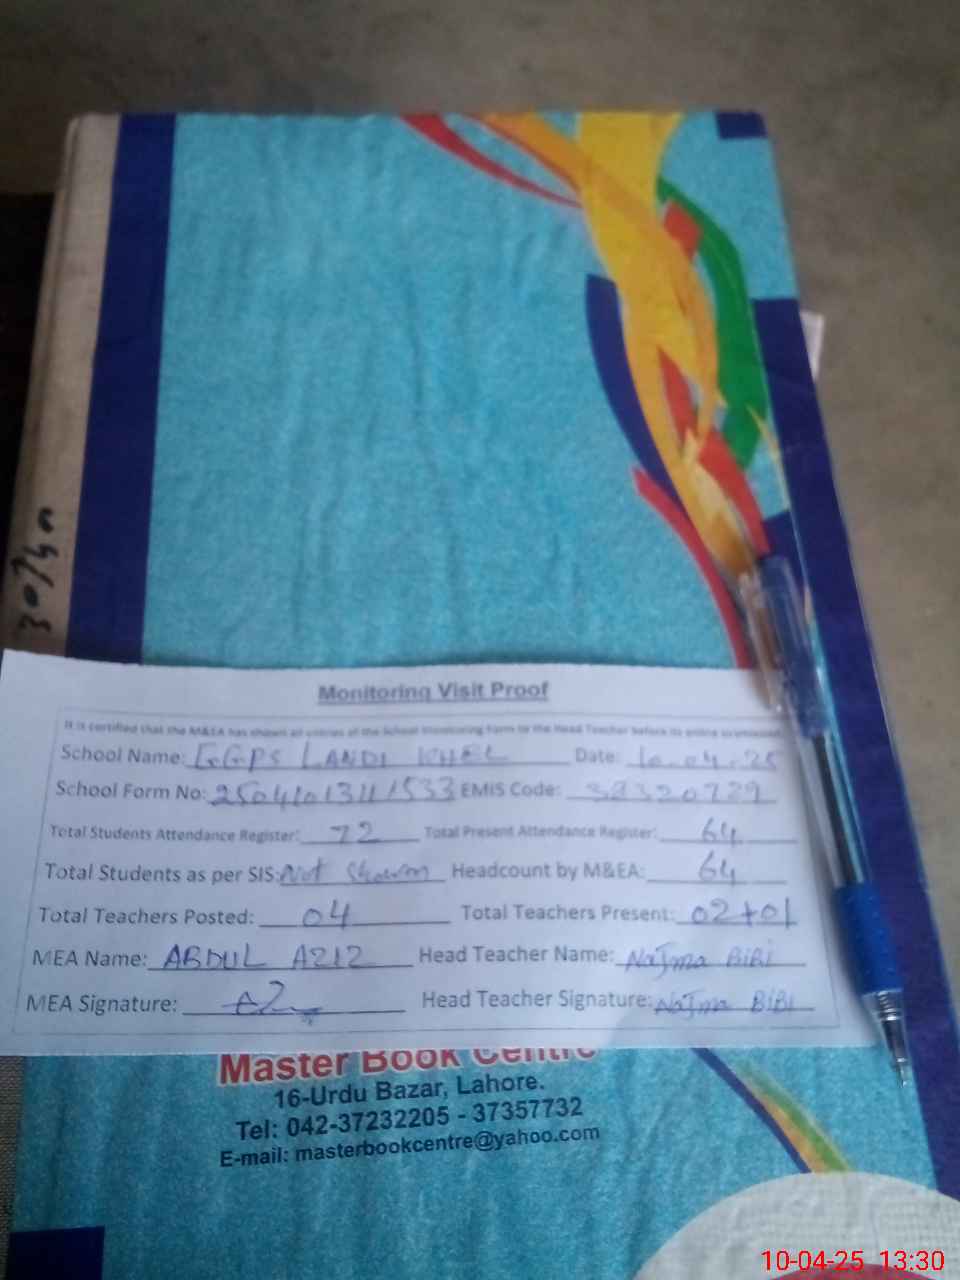 Monitoring Visit Proof
It is certified that the M&EA has shown all entries of the School Monitoring Form to the Head Teacher before its online submission.
School Name: GGPS LANDI KHEL Date: 10.04.25
School Form No: 25041013111533 EMIS Code: 38320729
Total Students Attendance Register: 72 Total Present Attendance Register: 64
Total Students as per SIS: Not Shown Headcount by M&EA: 64
Total Teachers Posted: 04 Total Teachers Present: 02+01
MEA Name: ABDUL AZIZ Head Teacher Name: Najma BiBi
MEA Signature: AZ Head Teacher Signature: Najma BiBi
Master Book Centre
16-Urdu Bazar, Lahore.
Tel: 042-37232205 - 37357732
E-mail: masterbookcentre@yahoo.com
10-04-25 13:30